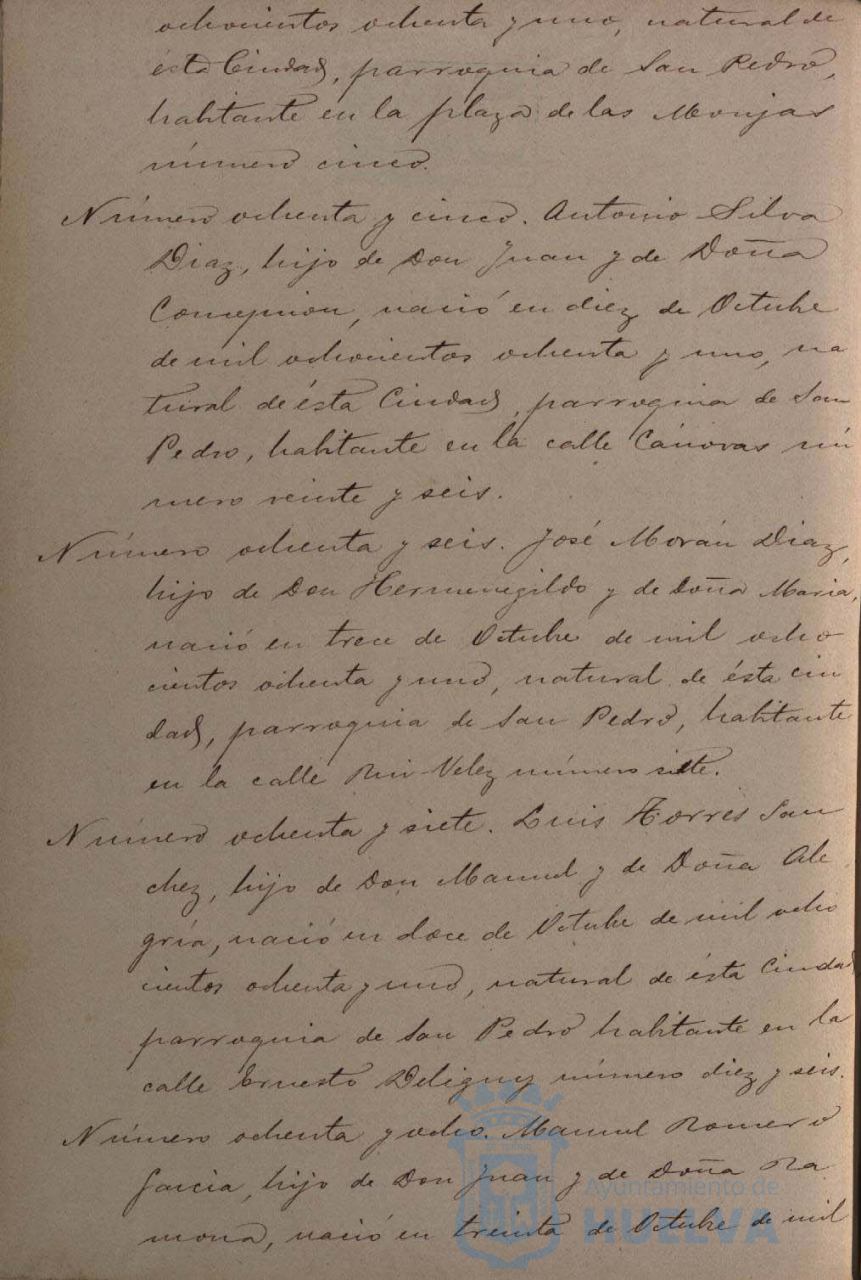 ochocientos ochenta y uno, natural de
ésta Ciudad, parroquia de San Pedro,
habitante en la plaza de las Monjas
número cinco.
Número ochenta y cinco. Antonio Silva
Diaz, hijo de Don Juan y de Doña
Concepcion, nació en diez de Octubre
de mil ochocientos ochenta y uno, na
tural de ésta Ciudad, parroquia de San
Pedro, habitante en la calle Cánovas nú
mero veinte y seis.
Número ochenta y seis. José Morán Diaz,
hijo de Don Hermenegildo y de Doña Maria,
nació en trece de Octubre de mil ocho
cientos ochenta y uno, natural de ésta ciu
dad, parroquia de San Pedro, habitante
en la calle Rui-Velez número siete.
Número ochenta y siete. Luis Torres San
chez, hijo de Don Manuel y de Doña Ale
gría, nació en doce de Octubre de mil ocho
cientos ochenta y uno, natural de ésta Ciudad
parroquia de San Pedro habitante en la
calle Ernesto Deligny número diez y seis.
Número ochenta y ocho. Manuel Romero
Garcia, hijo de Don Juan y de Doña Ra
mona, nació en treinta de Octubre de mil
Ayuntamiento de
HUELVA